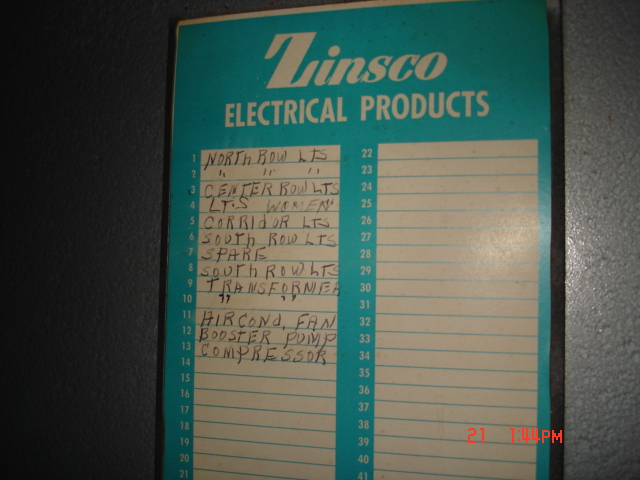 Zinsco
ELECTRICAL PRODUCTS
1 NORTH ROW LTS
2 " " "
3 CENTER ROW LTS
4 LT.S WOMEN
5 CORRIDOR LTS
6 SOUTH ROW LTS
7 SPARE
8 SOUTH ROW LTS
9 TRANSFORMER
10 " "
11 AIR COND. FAN
12 BOOSTER PUMP
13 COMPRESSOR
14
15
16
17
18
19
20
21
22
23
24
25
26
27
28
29
30
31
32
33
34
35
36
37
38
39
40
41
21 1:44PM